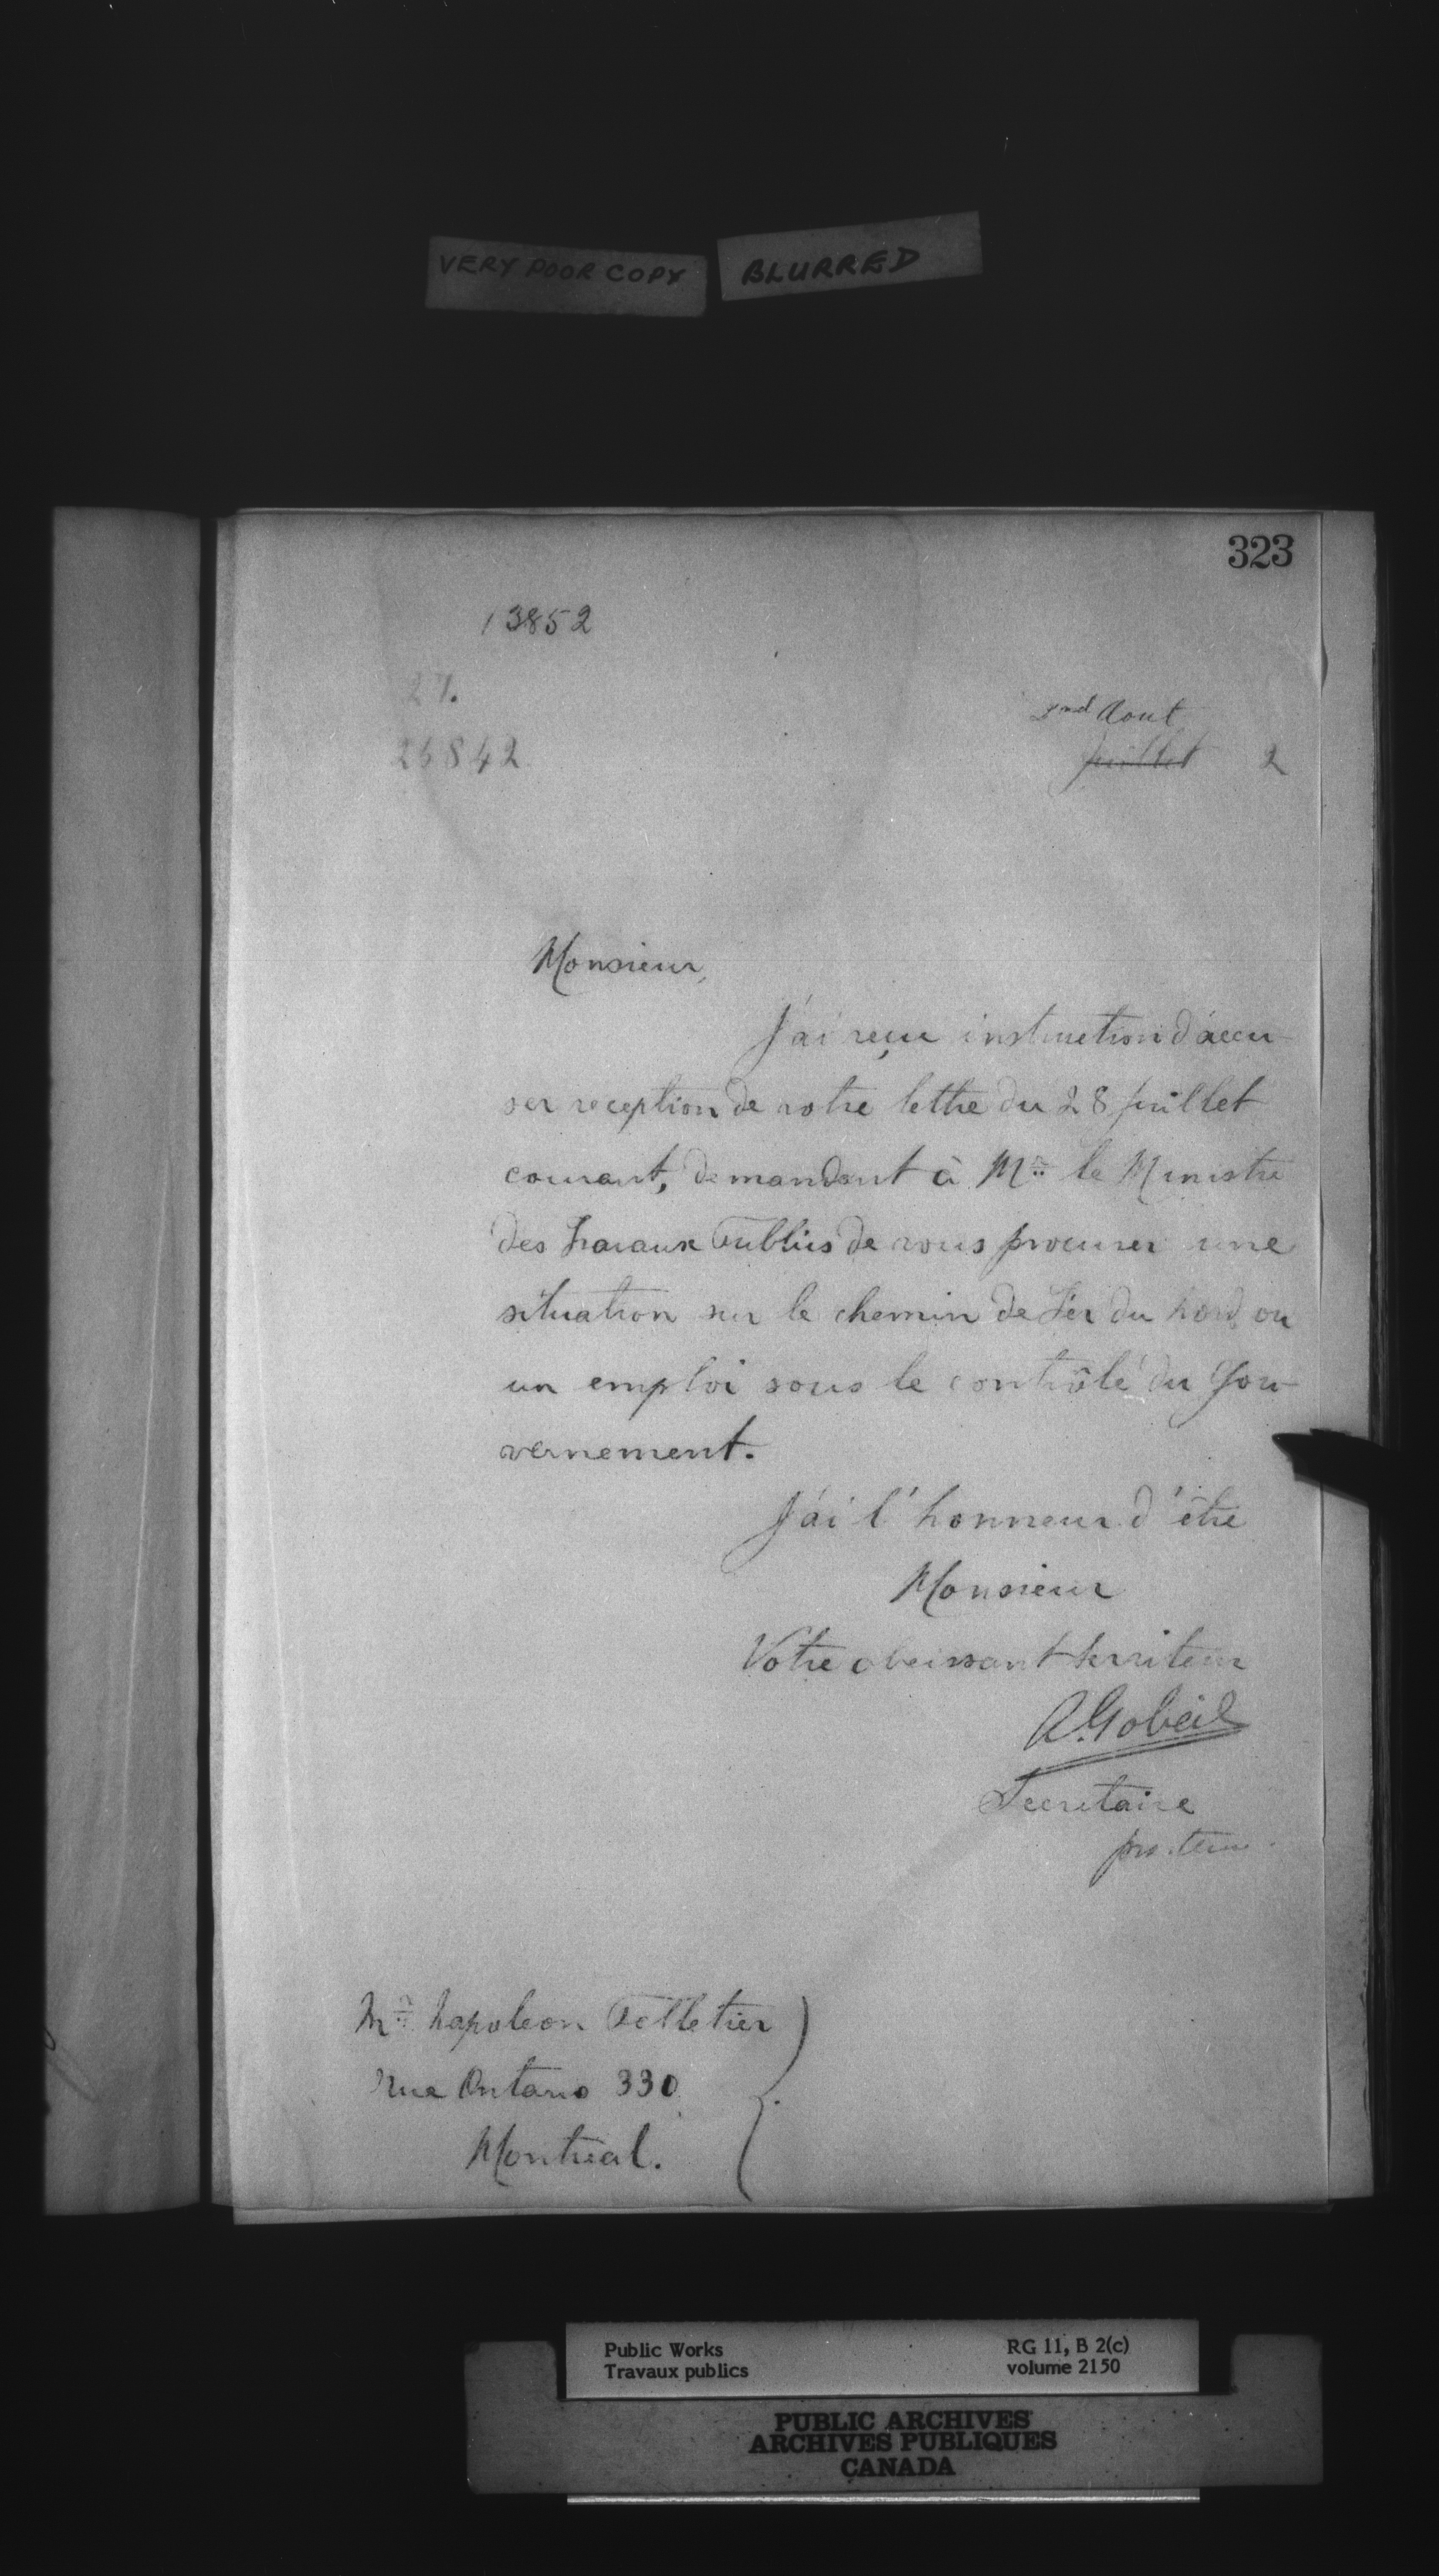 VERY POOR COPY BLURRED
323
13852
27.
25842
2nd Aout
juillet 2
Monsieur,
J'ai reçu instruction d'accu-
ser reception de votre lettre du 28 juillet
courant, demandant à Mr. le Ministre
des Travaux Publics de vous procurer une
situation sur le chemin de Fer du Nord ou
un emploi sous le contrôle du Gou-
vernement.
J'ai l'honneur d'être
Monsieur
Votre obeissant serviteur
A. Gobeil
Secretaire
pro. tem.
Mr. Napoleon Pelletier
Rue Ontario 330
Montreal.
Public Works RG 11, B 2(c)
Travaux publics volume 2150
PUBLIC ARCHIVES
ARCHIVES PUBLIQUES
CANADA